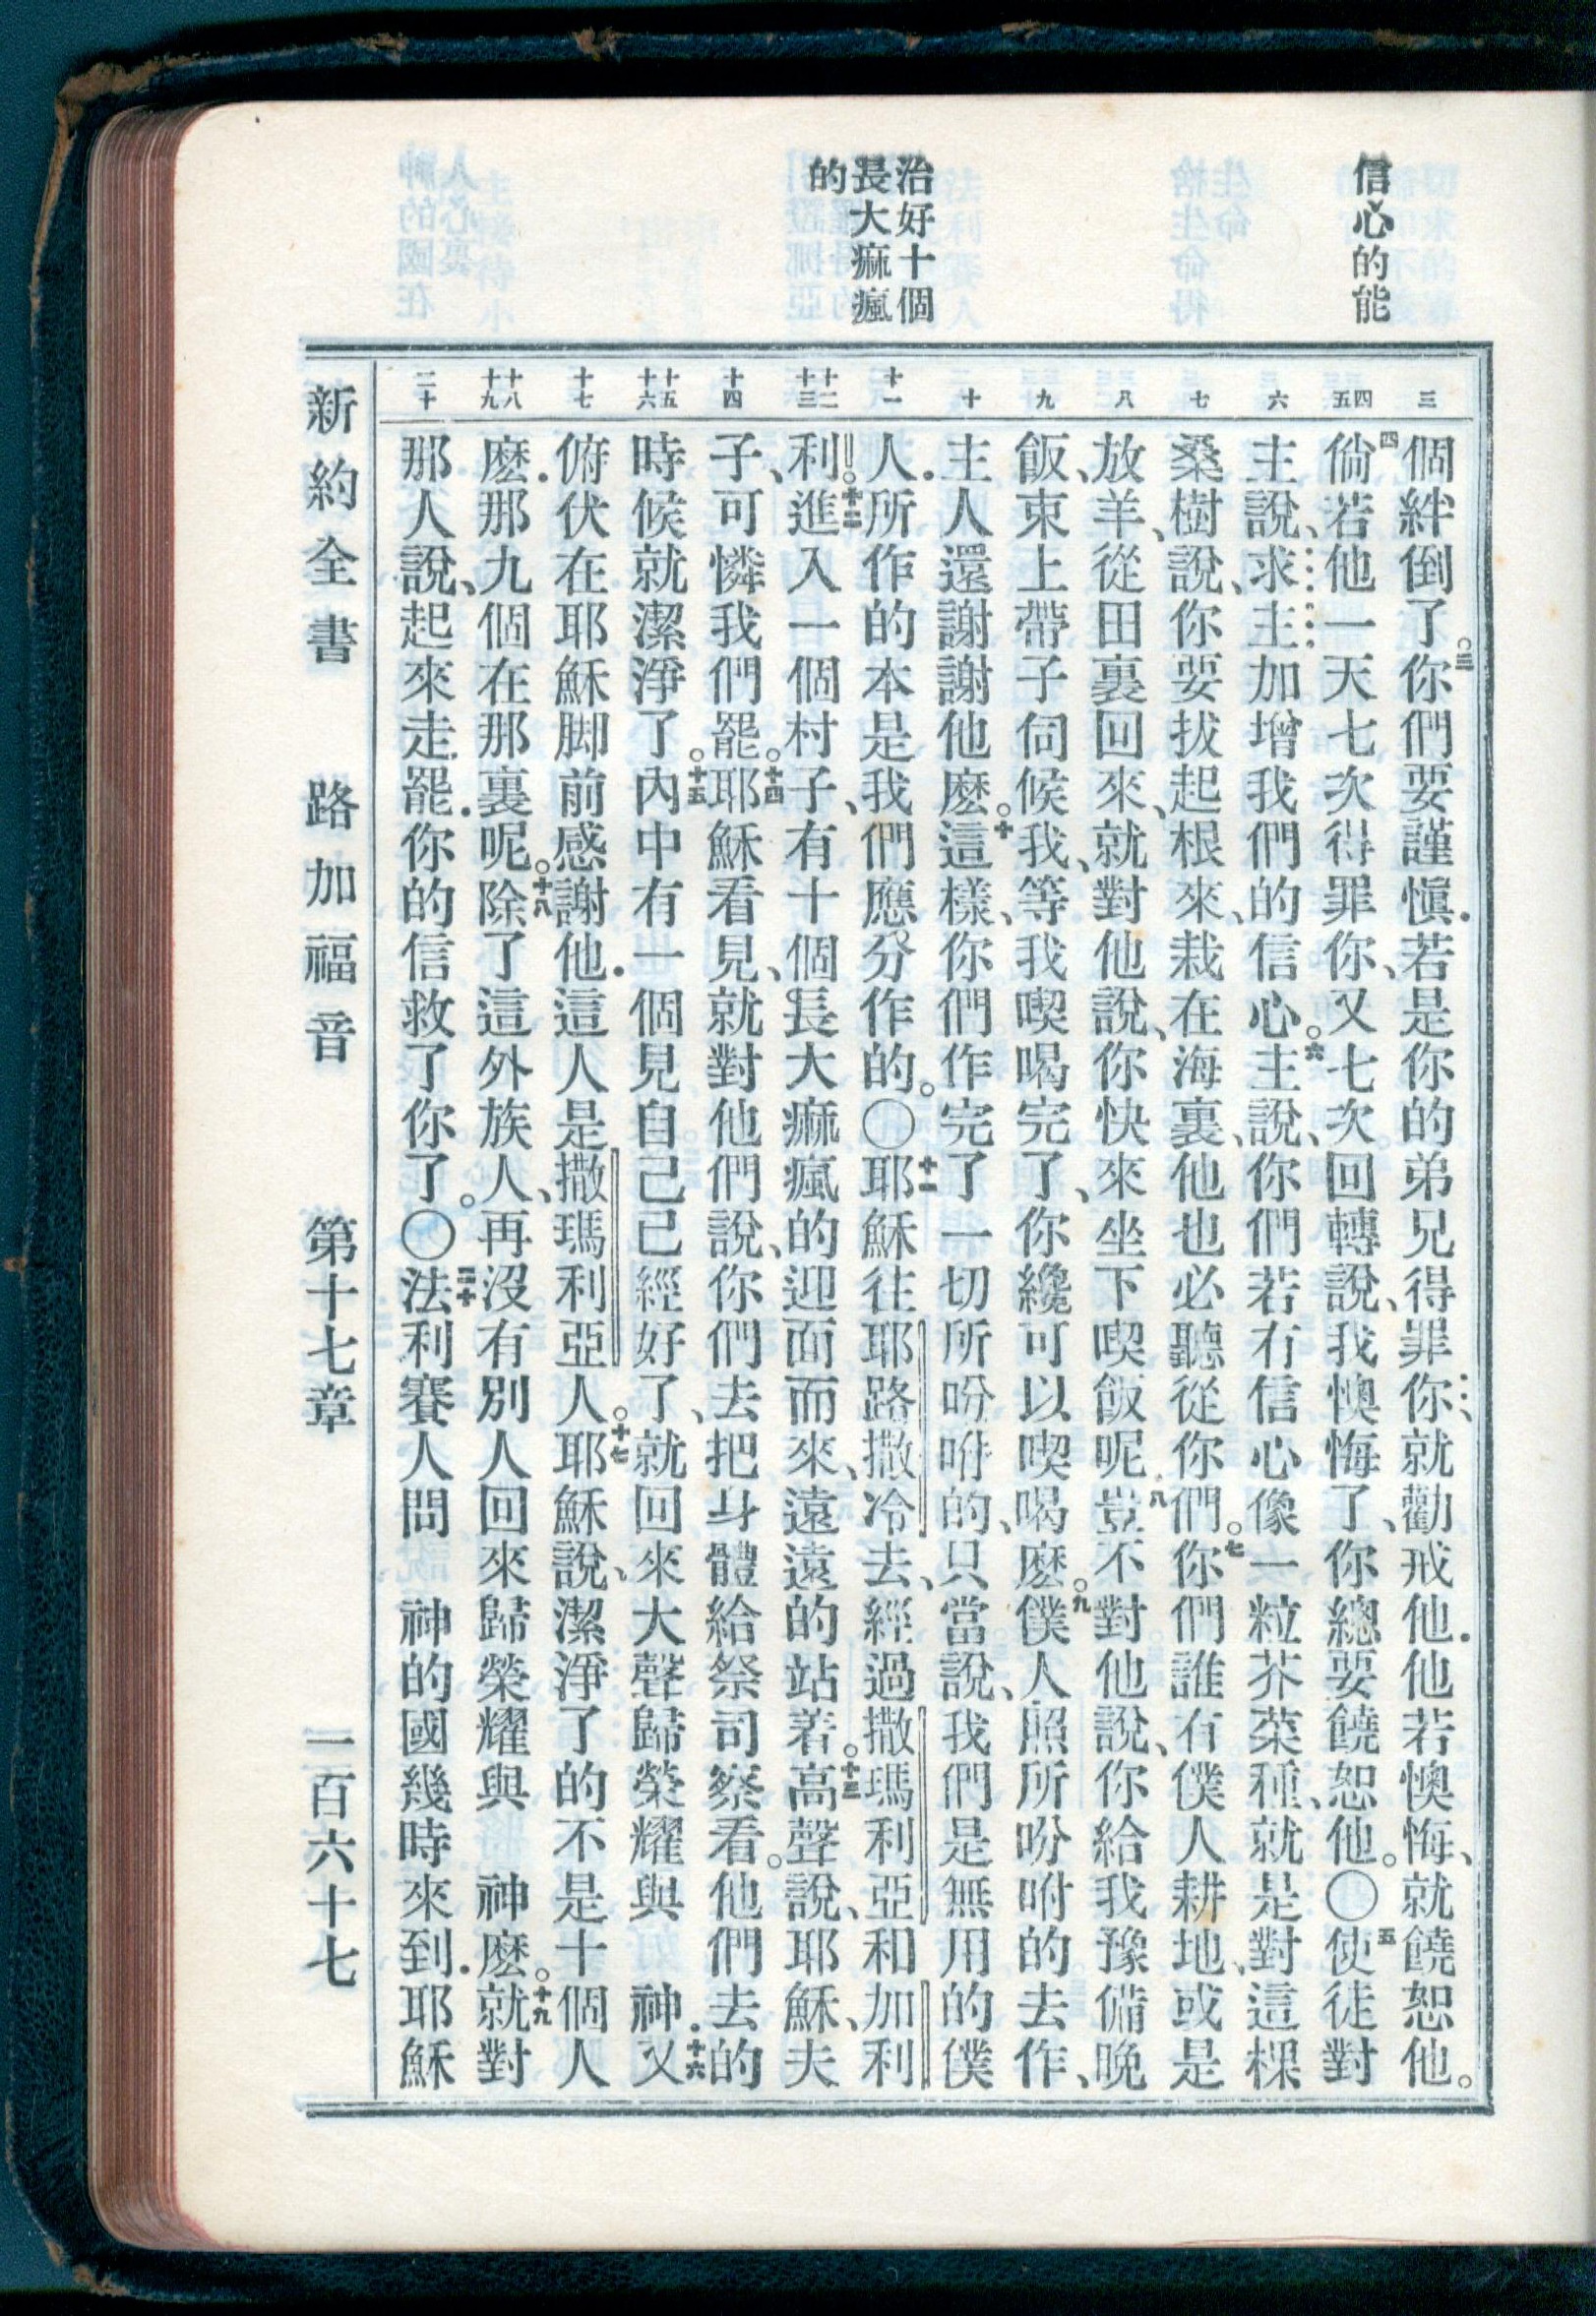 信心的能
治好十個
長大痲瘋
的
三
四
五
六
七
八
九
十
十一
十二
十三
十四
十五
十六
十七
十八
十九
二十
個絆倒了。三你們要謹愼．若是你的弟兄得罪你、就勸戒他．他若懊悔、就饒恕他。
四倘若他一天七次得罪你、又七次回轉說、我懊悔了、你總要饒恕他。〇五使徒對
主說、求主加增我們的信心。六主說、你們若有信心像一粒芥菜種、就是對這棵
桑樹說、你要拔起根來、栽在海裏、他也必聽從你們。七你們誰有僕人耕地、或是
放羊、從田裏回來、就對他說、你快來坐下喫飯呢．八豈不對他說、你給我豫備晚
飯、束上帶子伺候我、等我喫喝完了、你纔可以喫喝麽。九僕人照所吩咐的去作、
主人還謝謝他麽。十這樣、你們作完了一切所吩咐的、只當說、我們是無用的僕
人．所作的本是我們應分作的。〇十一耶穌往耶路撒冷去、經過撒瑪利亞和加利
利。十二進入一個村子、有十個長大痲瘋的迎面而來、遠遠的站着。十三高聲說、耶穌、夫
子、可憐我們罷。十四耶穌看見、就對他們說、你們去把身體給祭司察看。他們去的
時候就潔淨了。十五內中有一個見自己已經好了、就回來大聲歸榮耀與　神．十六又
俯伏在耶穌脚前感謝他．這人是撒瑪利亞人。十七耶穌說、潔淨了的不是十個人
麽．那九個在那裏呢。十八除了這外族人、再沒有別人回來歸榮耀與　神麽。十九就對
那人說、起來走罷．你的信救了你了。〇二十法利賽人問　神的國幾時來到．耶穌
新約全書　路加福音　第十七章　一百六十七